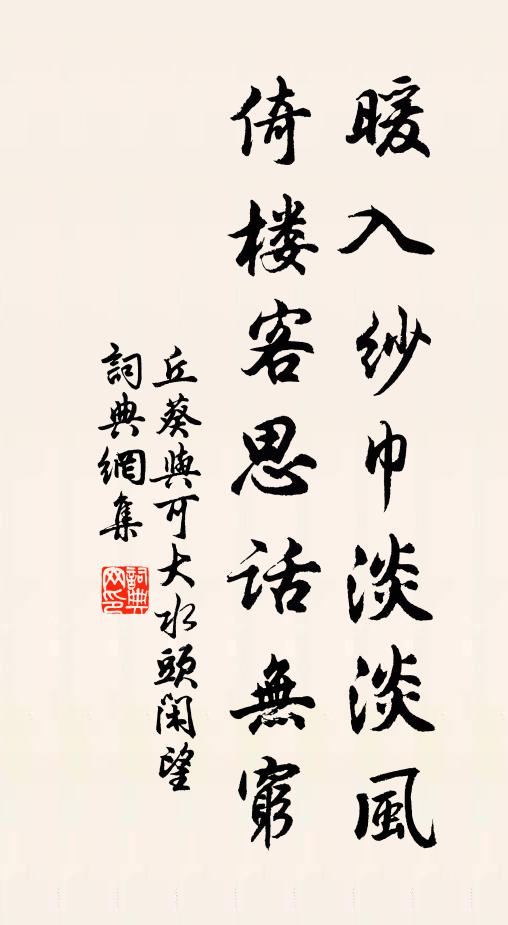 暖入紗巾淡淡風
倚楼客思話無窮
丘葵與可大水頭閑望
詞典網集
詞典網印